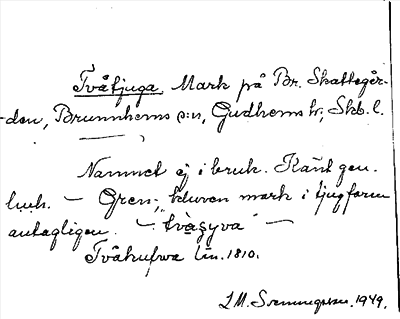 Tvåtjuga, Mark på Br. Skattegår-
-den, Brunnhems s:n, Gudhems hr, Skb. l.
Namnet ej i bruk. Känt gen.
lunh. – Gren-, kluven mark i tjugform
antagligen. –
Tvåkufwa Lin. 1810.
1949.